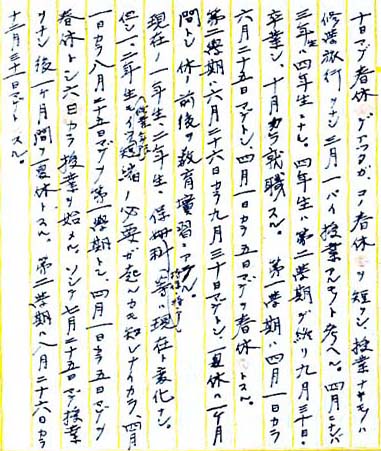 十日マデ春休ミデアッタガ、コノ春休ミヲ短クシ授業ナキモノハ
修學旅行ヲナシ二月一パイ授業アルヲト考ヘル。四月ニナレバ
三年生ハ四年生ニナル。四年生ハ第二學期ガ終リ九月三十日
卒業シ、十月カラ就職スル。第一學期ハ四月一日カラ
六月二十五日マデトシ、四月一日カラ五日マデヲ春休トスル。
第二學期ハ六月二十六日カラ九月三十日マデトシ、夏休ハ一ケ月
間トシ休ノ前後ヲ教育實習ニアテル。
現在ノ一年生、二年生、保姆科等ハ現在ト変化ナシ。
但シ一、二年生モイツ短縮ノ必要ガ起ルカモ知レナイカラ、四月
一日カラ八月二十五日マデヲ第一學期トシ、四月一日カラ五日マデヲ
春休トシ六日カラ授業ヲ始メル。ソシテ七月二十五日マデ授業
ヲナシ後一ケ月間ヲ夏休トスル。第二學期ハ八月二十六日カラ
十二月三十一日マデトスル。